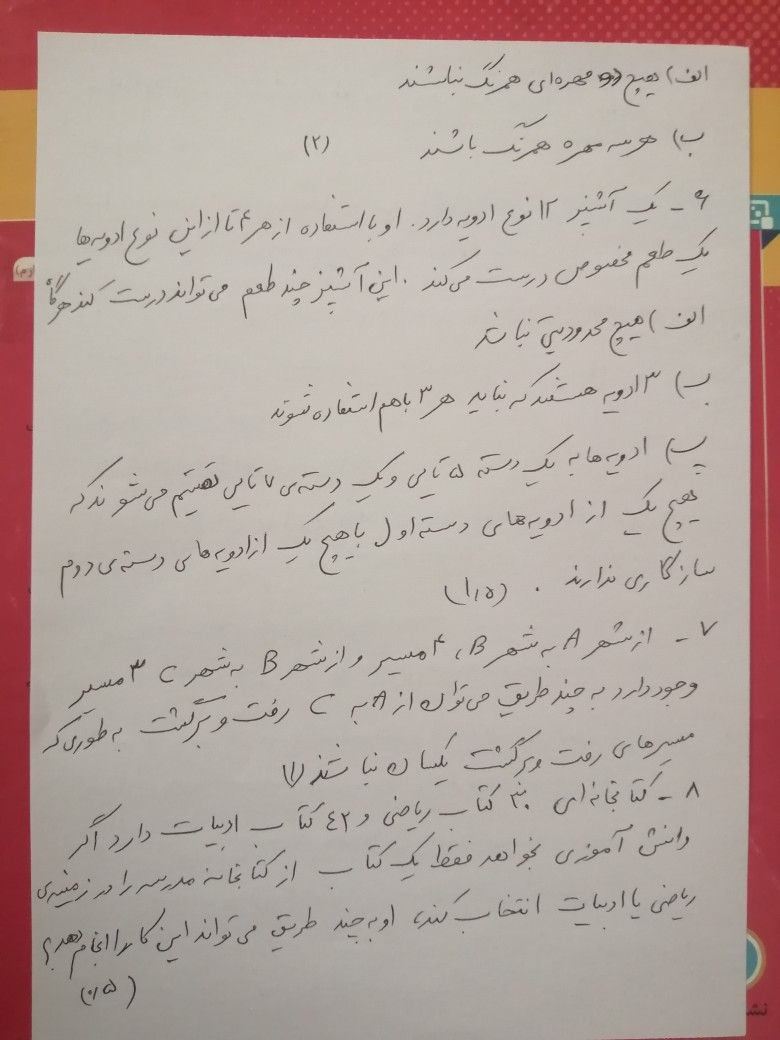 الف) هیچ دو مهره‌ای همرنگ نباشند
ب) هر سه مهره همرنگ باشند (۲)
۶ - یک آشپز ۱۲ نوع ادویه دارد. او با استفاده از هر ۴ تا از این نوع ادویه‌ها
یک طعم مخصوص درست می‌کند. این آشپز چند طعم می‌تواند درست کند هرگاه
الف) هیچ محدودیتی نباشد
ب) ۳ ادویه هستند که نباید هر ۳ با هم استفاده شوند
پ) ادویه‌ها به یک دسته ۵ تایی و یک دسته‌ی ۷ تایی تقسیم می‌شوند که
هیچ یک از ادویه‌های دسته اول با هیچ یک از ادویه‌های دسته‌ی دوم
سازگاری ندارند. (۱٫۵)
۷ - از شهر A به شهر B، ۴ مسیر و از شهر B به شهر C ۳ مسیر
وجود دارد به چند طریق می‌توان از A به C رفت و برگشت به طوری که
مسیرهای رفت و برگشت یکسان نباشند (۱)
۸ - کتابخانه‌ای ۳۰ کتاب ریاضی و ۴۲ کتاب ادبیات دارد اگر
دانش آموزی بخواهد فقط یک کتاب از کتابخانه مدرسه را در زمینه‌ی
ریاضی یا ادبیات انتخاب کند، او به چند طریق می‌تواند این کار را انجام دهد؟
(۰٫۵)
نش